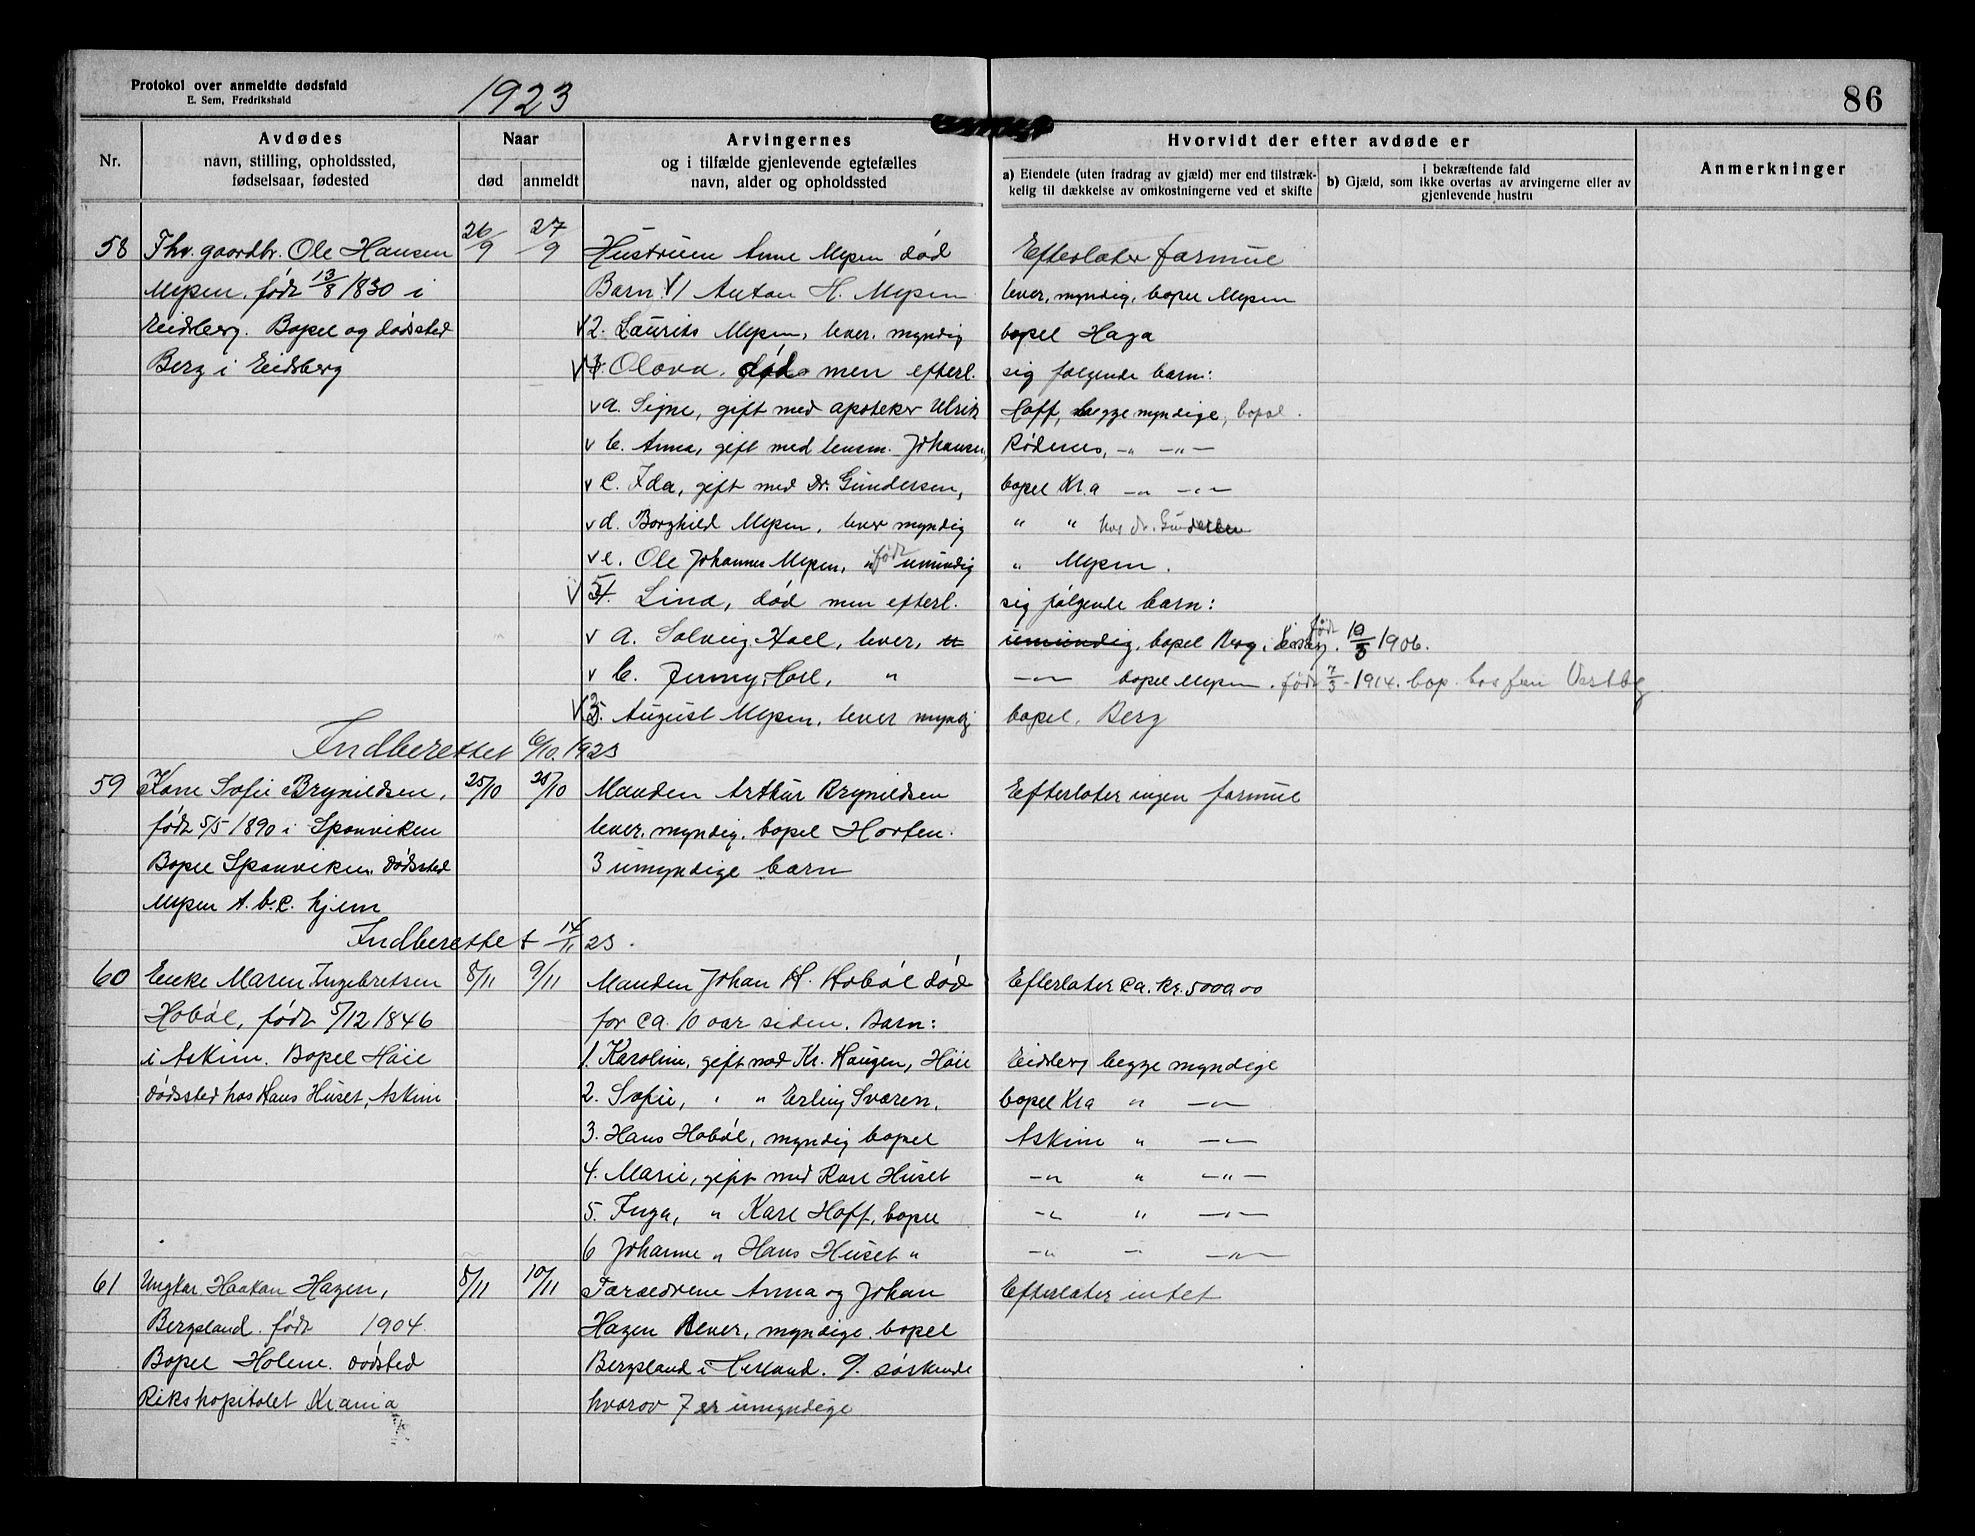 Protokol over anmeldte dødsfald
E. Sem, Fredrikshald
1923
86
Nr.
Avdødes
navn, stilling, opholdssted,
fødselsaar, fødested
Naar
død
anmeldt
Arvingernes
og i tilfælde gjenlevende egtefælles
navn, alder og opholdssted
Hvorvidt der efter avdøde er
a) Eiendele (uten fradrag av gjæld) mer end tilstræk-
kelig til dækkelse av omkostningerne ved et skifte
i bekræftende fald
b) Gjæld, som ikke overtas av arvingerne eller av
gjenlevende hustru
Anmerkninger
58 Fhv. gaardbr. Ole Hansen 26/9 27/9 Hustruen Anne Mysen død Efterlater formue
Mysen, født 13/8 1830 i Barn: 1 Anton H. Mysen lever, myndig, bopel Mysen
Eidsberg. Bopel og dødssted 2. Laurits Mysen, lever, myndig bopel Haga
Berg i Eidsberg 4. Olava, død men efterl. sig følgende barn:
a. Signe, gift med apoteker Ulrik Hoff, begge myndige, bopæl.
b. Anna, gift med lensm. Johansen, Rødenes, -"- -"-
c. Ida, gift med Dr. Gundersen, bopel Kra -"- -"-
d. Borghild Mysen, lever myndig " " hos dr. Gundersen
e. Ole Johannes Mysen, " født umyndig " Mysen.
5. Lina, død men efterl. sig følgende barn:
a. Solveig Hoel, lever, u umyndig, bopel Berg i Eidsbg. født 10/5 1906.
b. Jenny Hoel, " -"- bopel Mysen. født 7/3 - 1914. bop. hos fru Vestby
3. August Mysen, lever myndig bopel. Berg
Indberettet 6/10. 1923
59 Kone Sofie Brynildsen, 25/10 28/10 Manden Arthur Brynildsen Efterlater ingen formue
født 5/5 1890 i Sponviken lever, myndig, bopel Horten.
Bopel Sponviken. dødssted 3 umyndige barn
Mysen A.b.c. hjem
Indberettet 14/11 23.
60 Enke Maren Ingebretsen 8/11 9/11 Manden Johan H. Hobøl død Efterlater ca. kr. 5000 00
Hobøl, født 5/12 1846 for ca. 10 aar siden. Barn:
i Askim. Bopel Høie 1. Karoline, gift med Kr. Haugen, Høie Eidsberg begge myndige
dødssted hos Hans Huset, Askim 2. Sofie, " " Erling Svaren, bopel Kra " -"-
3. Hans Hobøl, myndig bopel Askim " -"-
4. Marie, gift med Karl Huset -"- " -"-
5. Inga, " Karl Hoff, bopel -"- " -"-
6 Johanne " Hans Huset " -"- - -"-
61 Ungkar Haakon Hagen, 8/11 10/11 Forældrene Anna og Johan Efterlater intet
Bergsland. født 1904 Hagen lever, myndige. bopel
Bopel Holene. dødsted Bergsland i Herland. 9. søskende
Rikshospitalet Krania hvorav 7 er umyndige